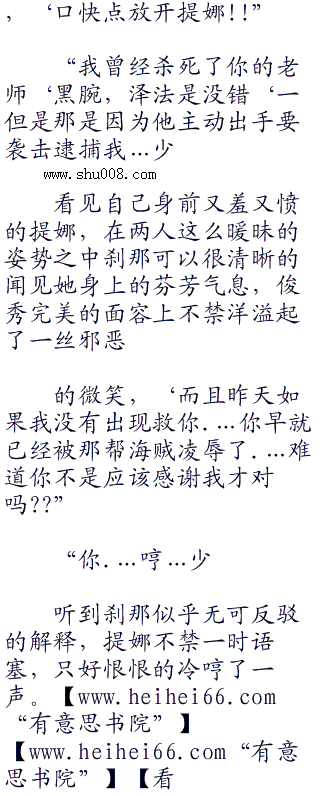 ，‘口快点放开提娜!!”
“我曾经杀死了你的老
师‘黑腕，泽法是没错‘一
但是那是因为他主动出手要
袭击逮捕我…少
www.shu008.com
看见自己身前又羞又愤
的提娜，在两人这么暖昧的
姿势之中刹那可以很清晰的
闻见她身上的芬芳气息，俊
秀完美的面容上不禁洋溢起
了一丝邪恶
的微笑，‘而且昨天如
果我没有出现救你.…你早就
已经被那帮海贼凌辱了.…难
道你不是应该感谢我才对
吗??”
“你.…哼…少
听到刹那似乎无可反驳
的解释，提娜不禁一时语
塞，只好恨恨的冷哼了一
声。【www.heihei66.com
“有意思书院”】
【www.heihei66.com“有意
思书院”】【看